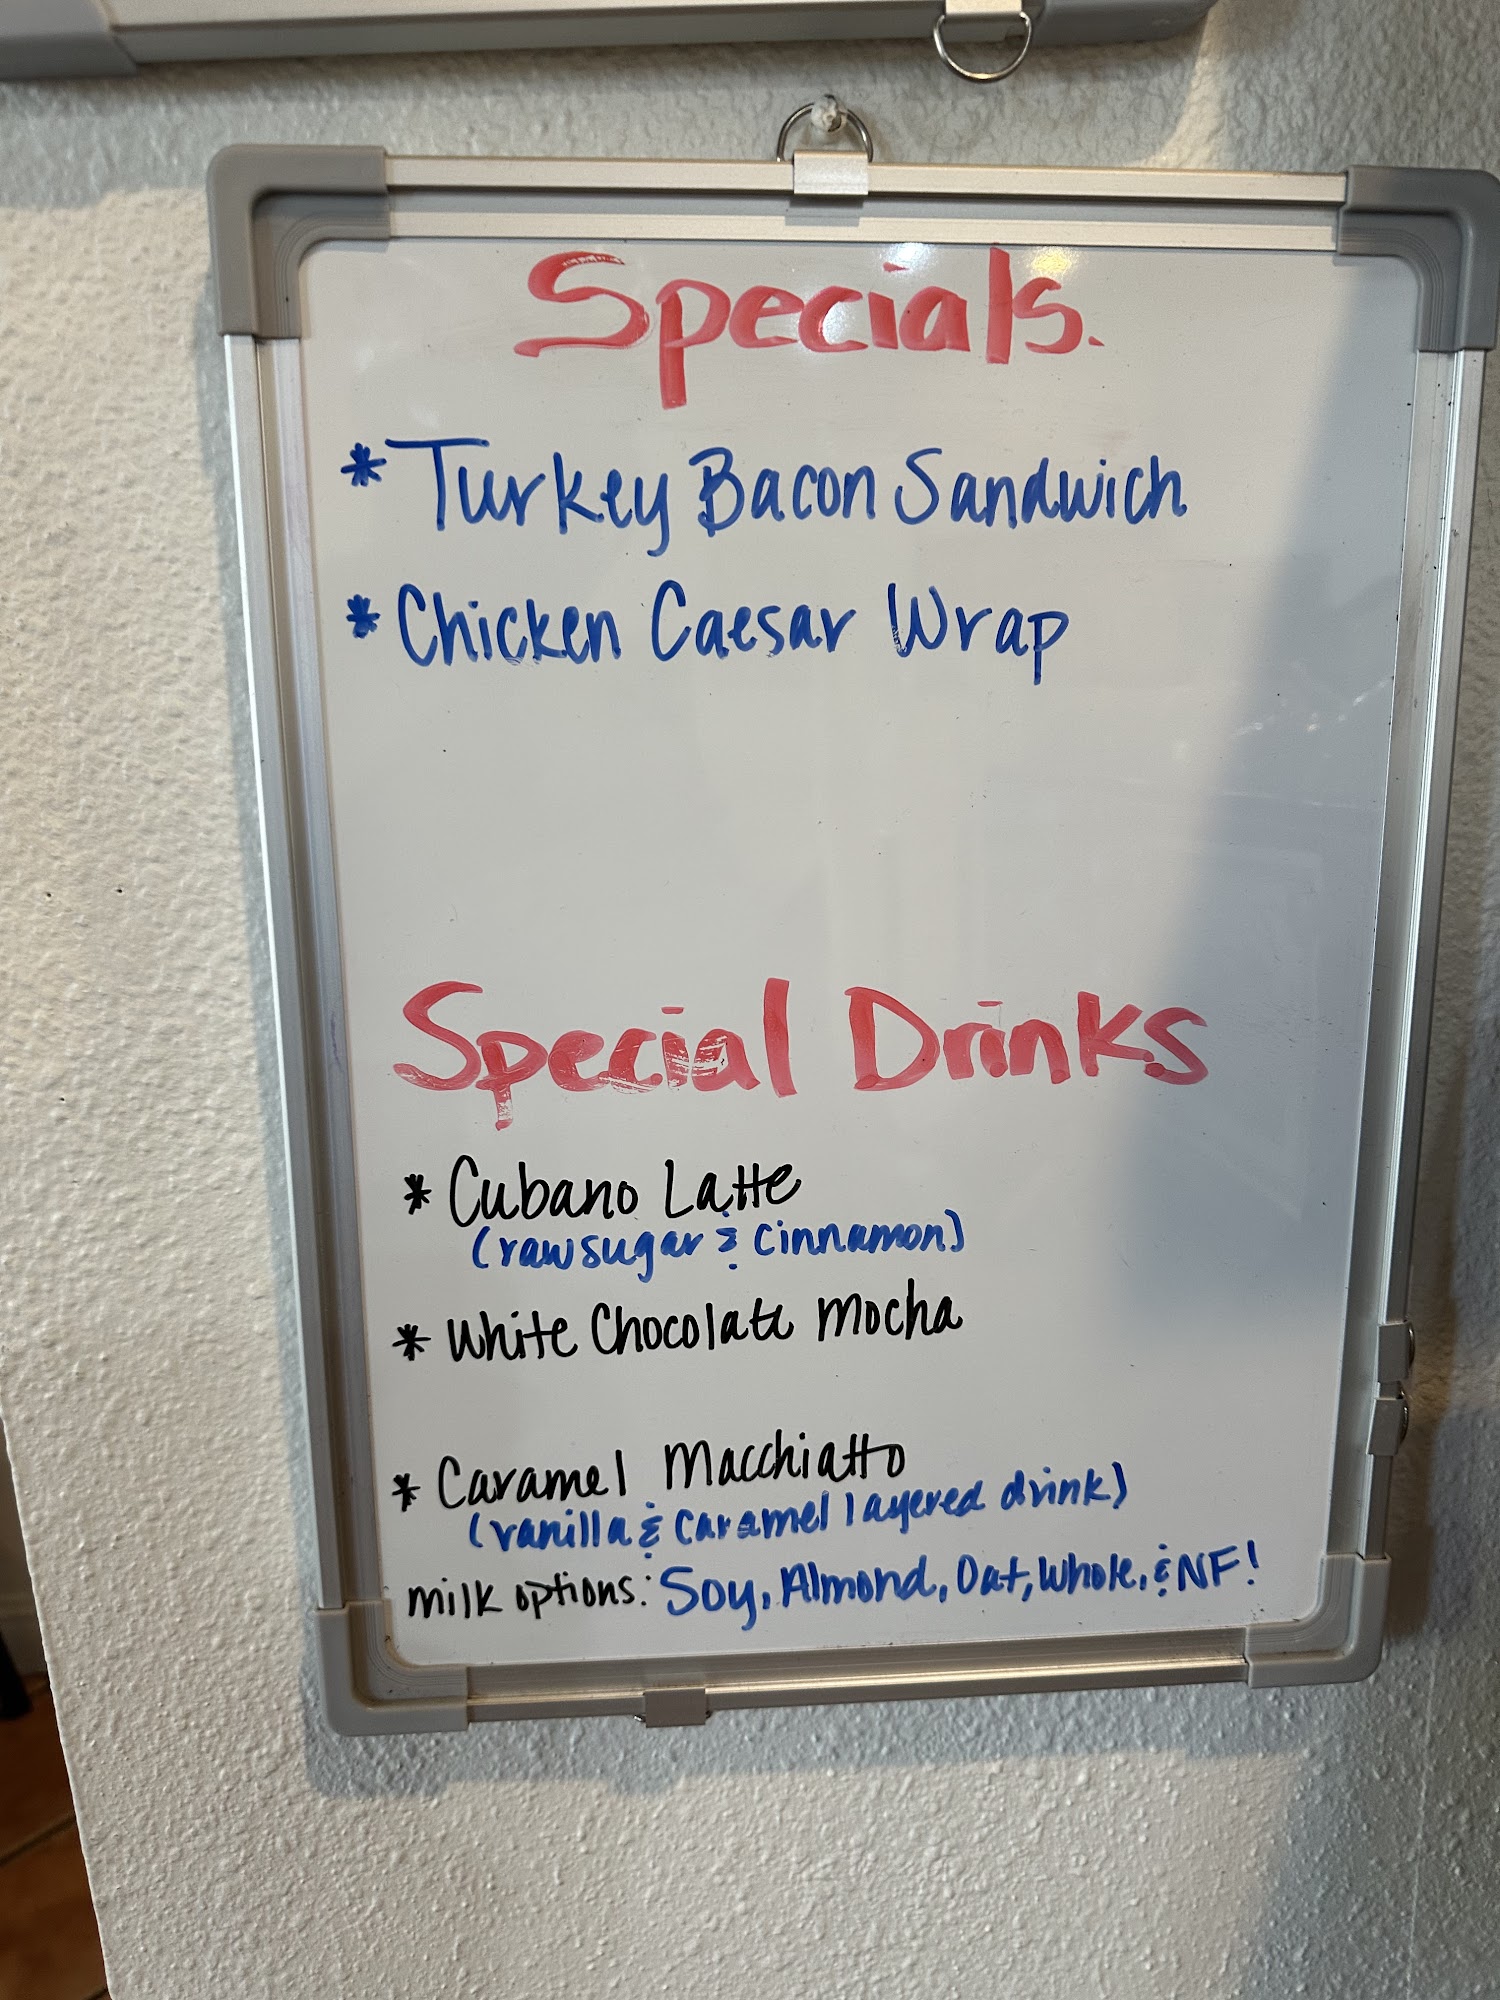 Specials.
* Turkey Bacon Sandwich
* Chicken Caesar Wrap
Special Drinks
* Cubano Latte
(raw sugar & cinnamon)
* White Chocolate Mocha
* Caramel Macchiatto
(vanilla & caramel layered drink)
milk options: Soy, Almond, Oat, Whole, & NF!